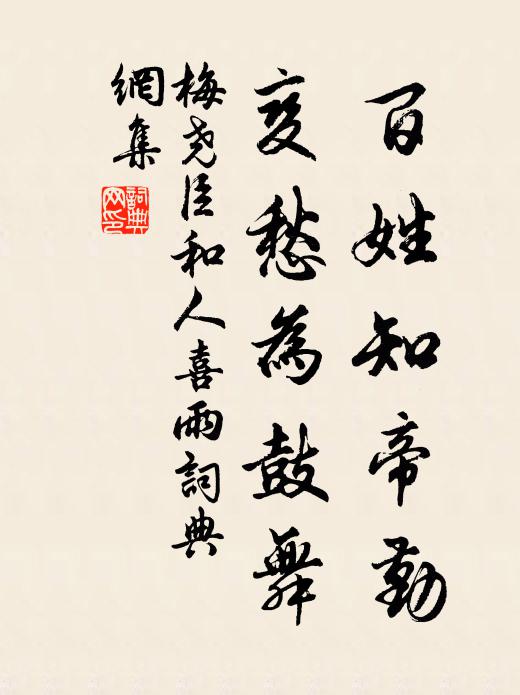 百姓知帝勤
变愁為鼓舞
梅尧臣和人喜雨詞典
網集
詞典
网印